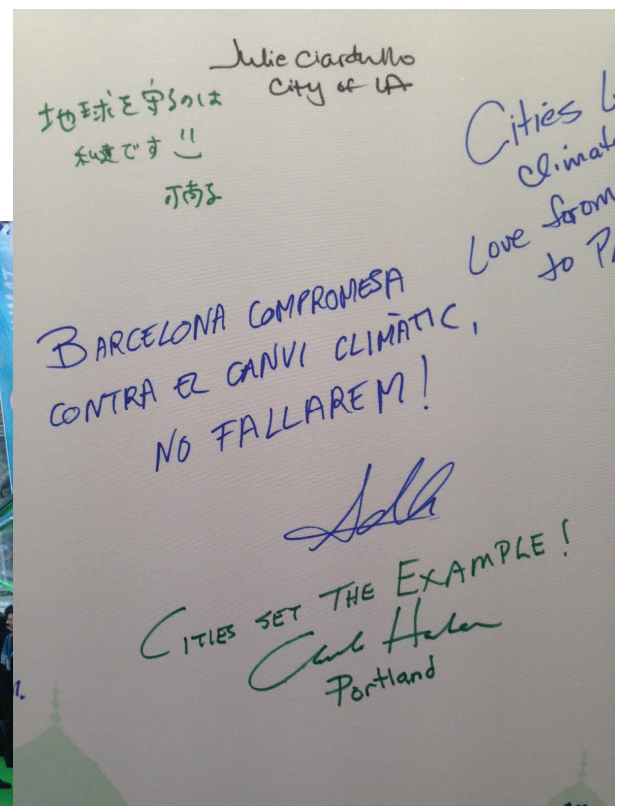 Julie Ciardullo
City of LA
地球を守るのは
私達です!!
Cities
Climate
Love from
to
BARCELONA COMPROMESA
CONTRA EL CANVI CLIMÀTIC,
NO FALLAREM!
CITIES SET THE EXAMPLE!
Portland